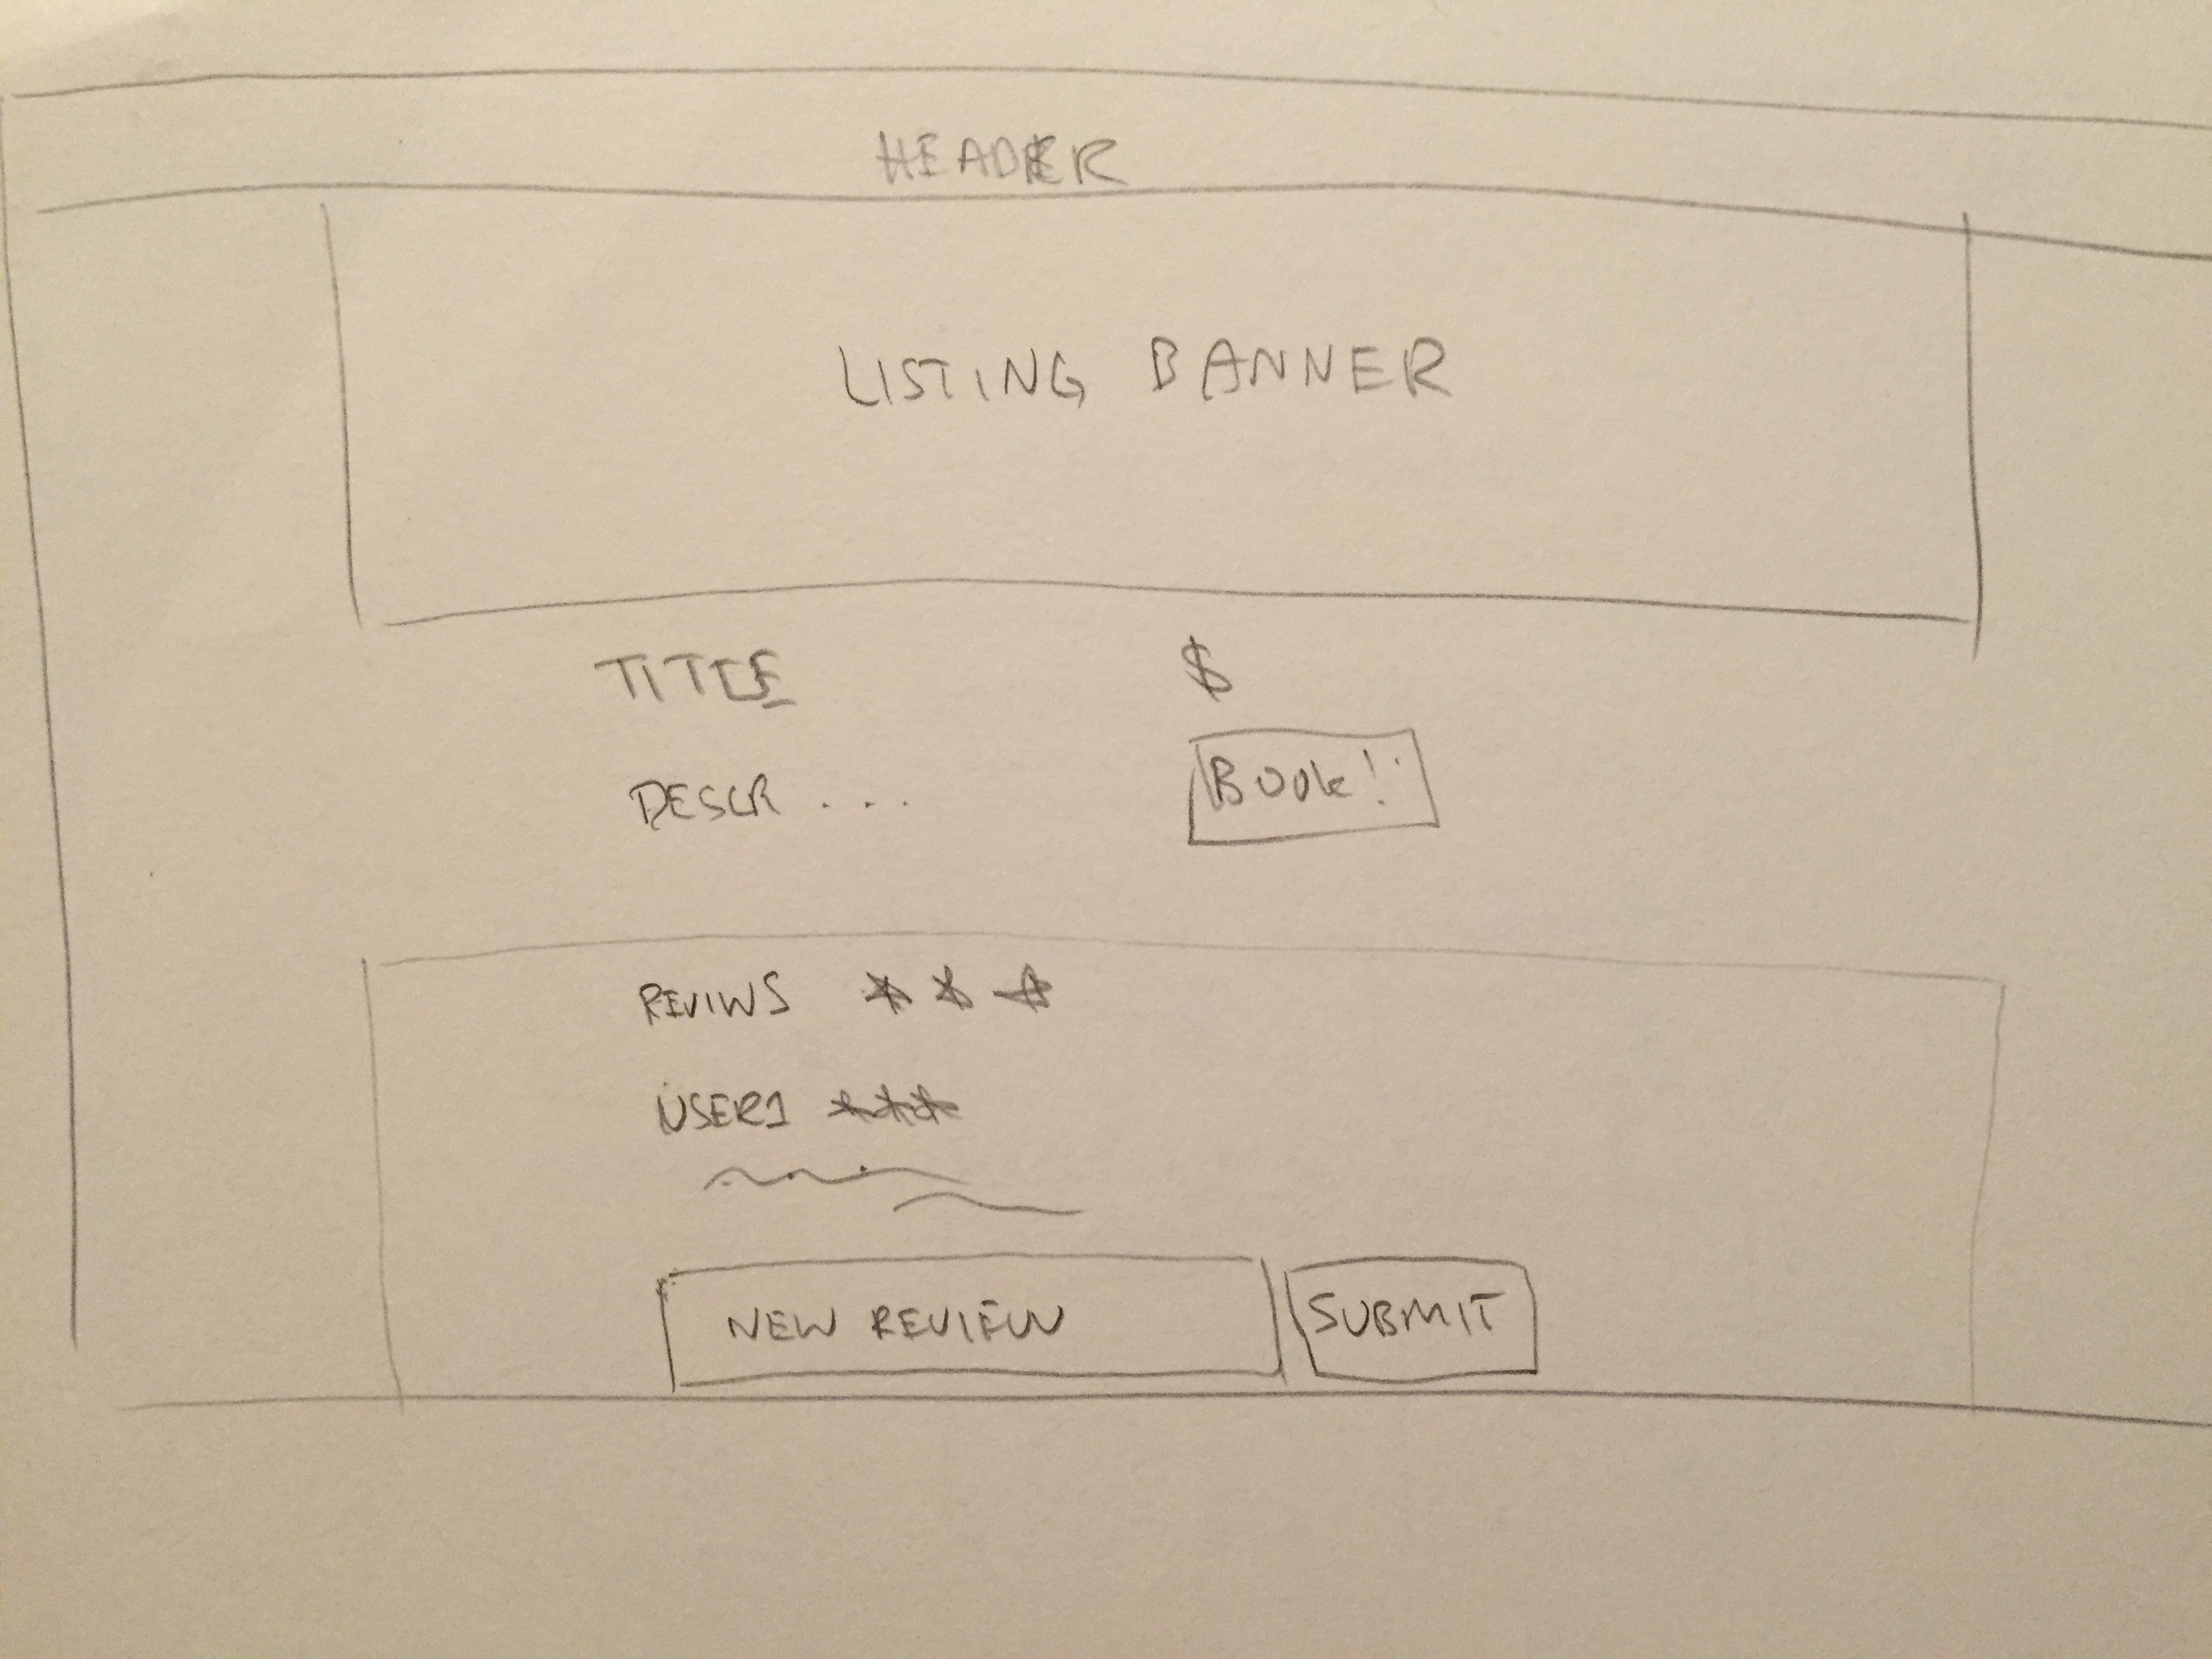 HEADER
LISTING BANNER
TITLE $
DESCR ... Book!
REVIWS
USER1
NEW REVIEW SUBMIT